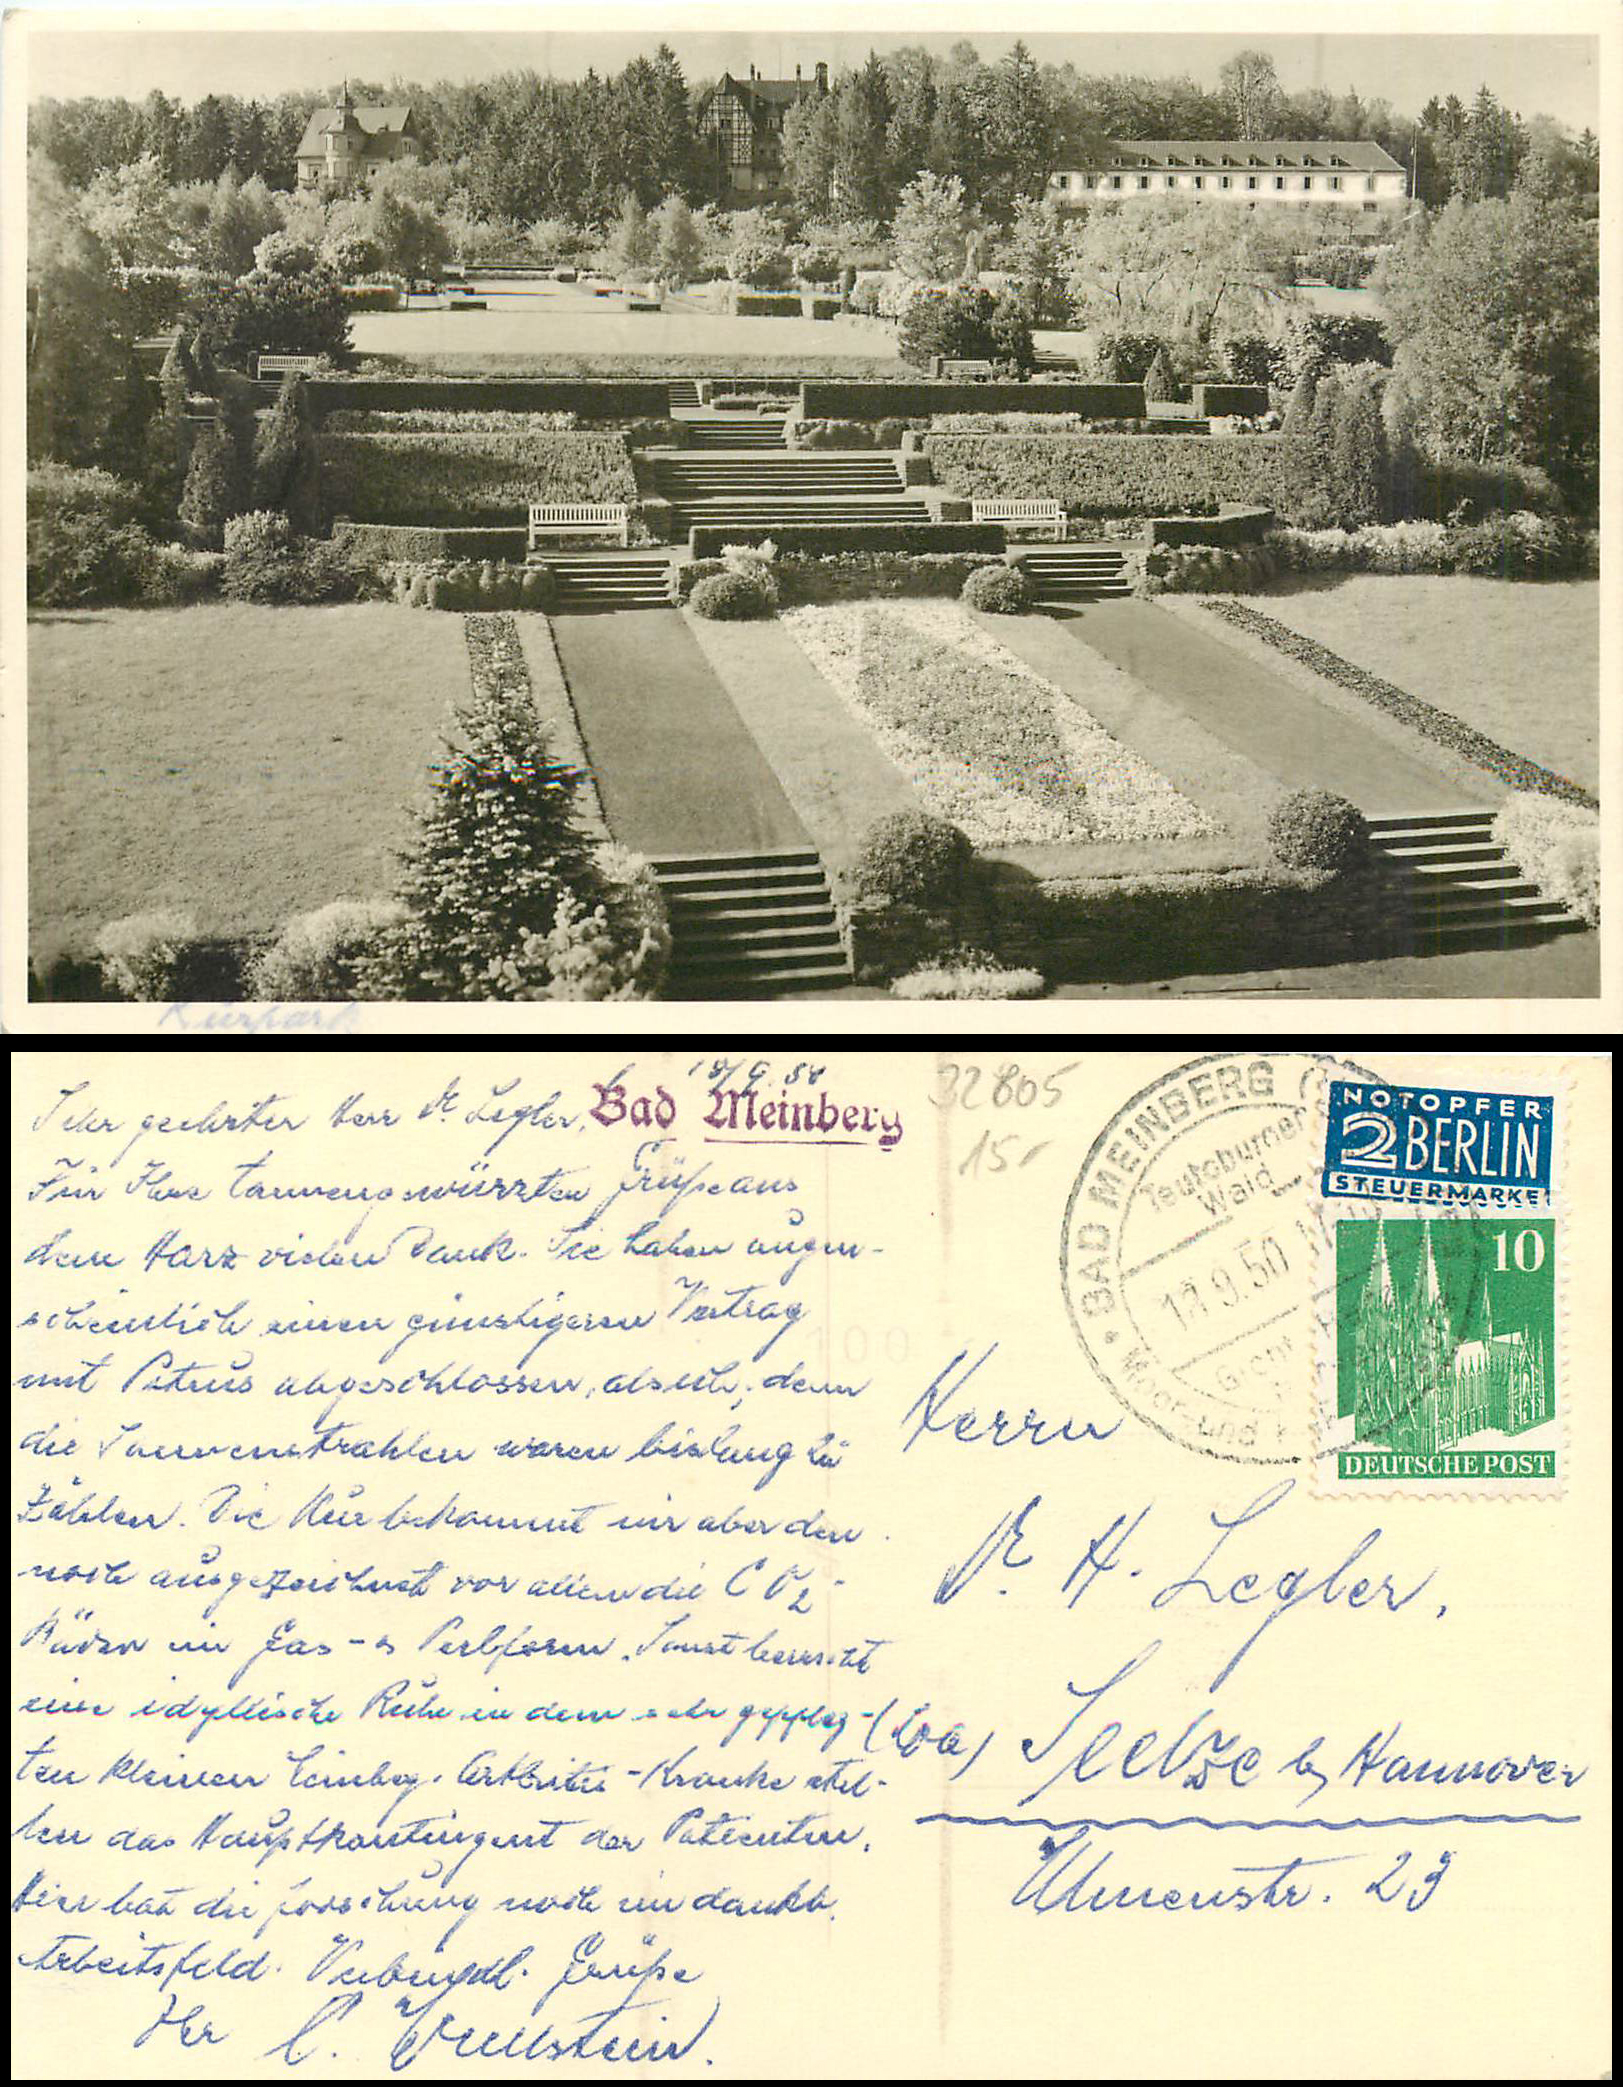 Kurpark
18/9. 50
Bad Meinberg
Sehr geehrter Herr Dr. Legler,
Für Ihre tannengewürzten Grüße aus
dem Harz vielen Dank. Sie haben augen-
scheinlich einen günstigeren Vertrag
mit Petrus abgeschlossen, als ich, denn
die Sonnenstrahlen waren bislang zu
zählen. Die Kur bekommt mir aber den
noch ausgezeichnet vor allem die CO2-
Bäder in Gas- u Perlform. Sonst herrscht
eine idyllische Ruhe in dem sehr gepfleg-
ten kleinen Meinberg. Arthritis-Kranke stel-
len das Hauptkontingent der Patienten.
Hier hat die Forschung noch ein dankb.
Arbeitsfeld. Verbindl. Grüße
Ihr C. Wellstein.
32805
15,-
BAD MEINBERG
Teutoburger
Wald
9.50
Moor- und
NOTOPFER
2 BERLIN
STEUERMARKE
10
DEUTSCHE POST
100
Herrn
Dr. H. Legler,
Seelze b/ Hannover
Ulmenstr. 23